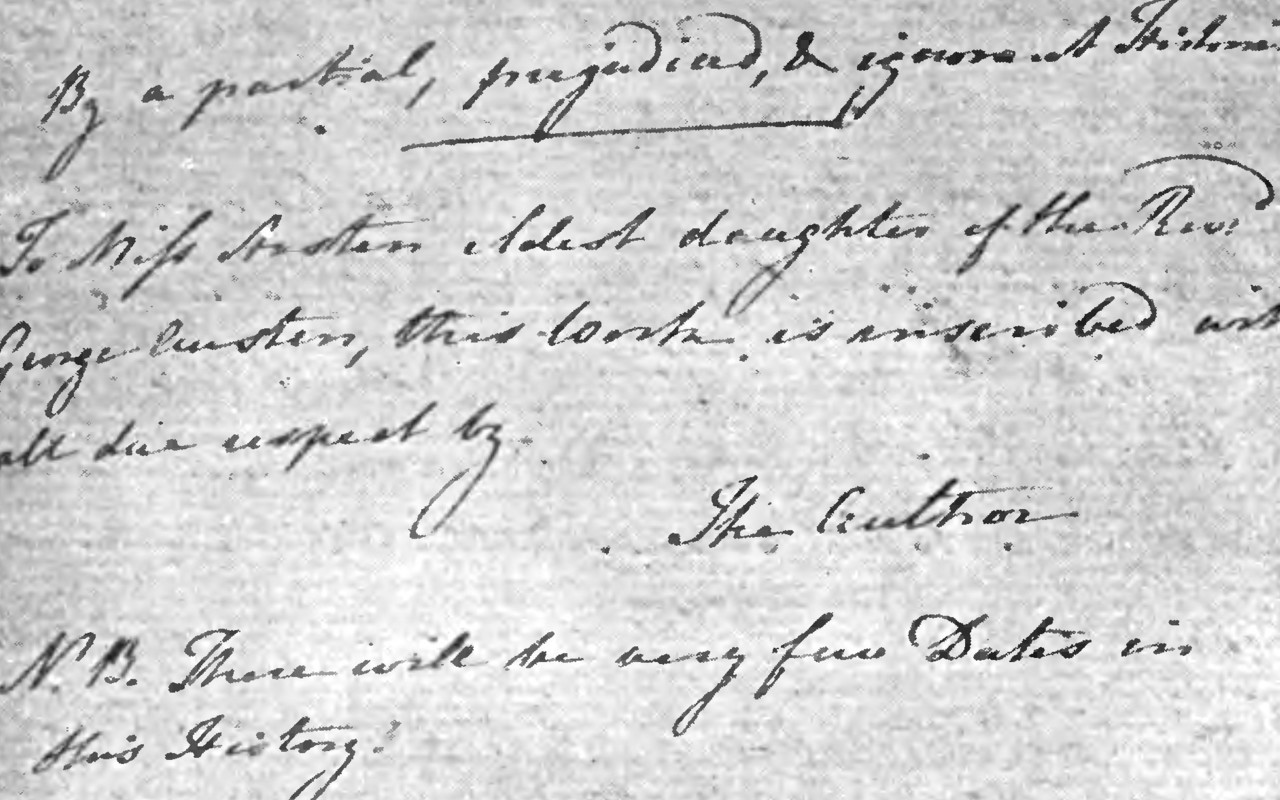 By a partial, prejudiced, & ignorant Historian
To Miss Austen eldest daughter of the Revd
George Austen, this Work is inscribed with
all due respect by
The Author
N.B. There will be very few Dates in
this History.